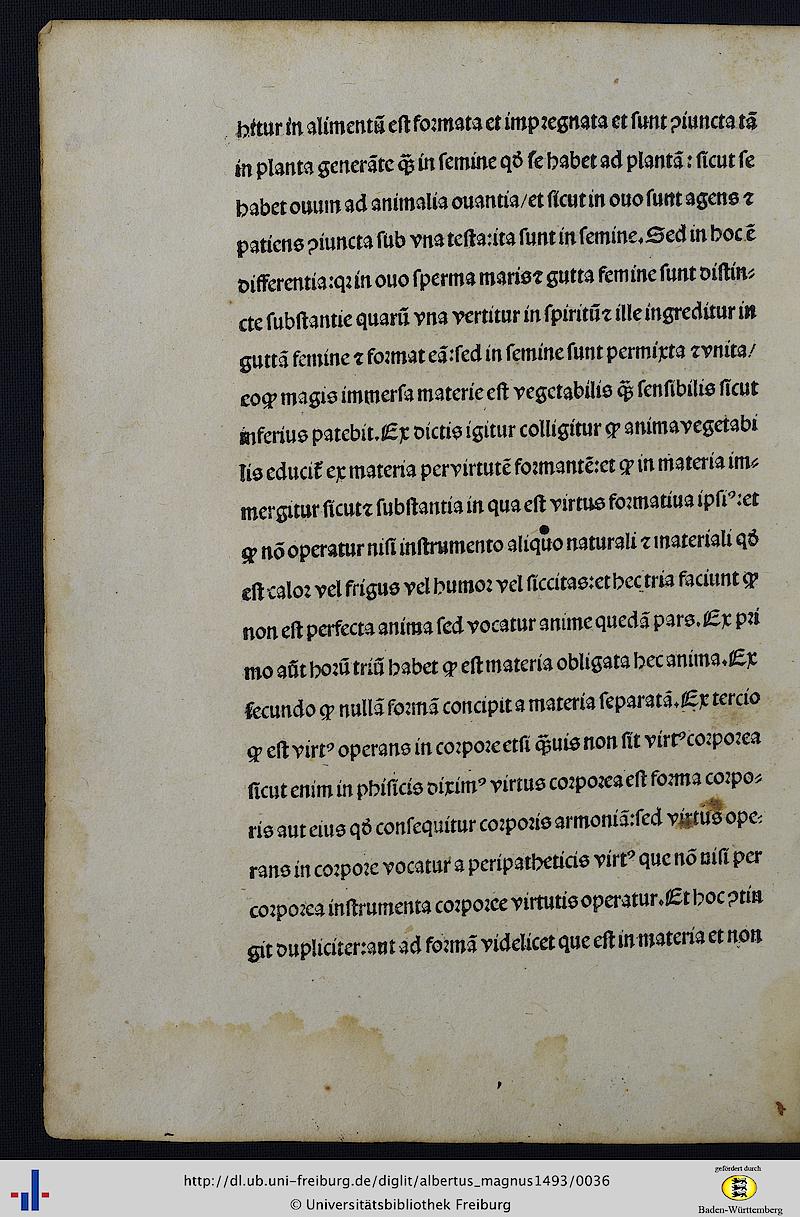 bitur in alimentū eſt foꝛmata et impꝛegnata et ſunt ꝯiuncta tā
in planta generāte q̄ȝ in ſemine qđ ſe habet ad plantā: ſicut ſe
habet ouum ad animalia ouantia/et ſicut in ouo ſunt agens ⁊
patiens ꝯiuncta ſub vna teſta:ita ſunt in ſemine.Sed in hoc ē
differentia:qꝛ in ouo ſperma maris⁊ gutta femine ſunt diſtin⸗
cte ſubſtantie quarū vna vertitur in ſpiritū⁊ ille ingreditur in
guttā femine ⁊ foꝛmat eā:ſed in ſemine ſunt permixta ⁊vnita/
eoꝙ magis immerſa materie eſt vegetabilis q̄ȝ ſenſibilis ſicut
inferius patebit.Ex dictis igitur colligitur ꝙ anima vegetabi
lis educit᷑ ex materia per virtutē foꝛmantē:et ꝙ in materia im⸗
mergitur ſicut⁊ ſubſtantia in qua eſt virtus foꝛmatiua ipſiꝰ:et
ꝙ nō operatur niſi inſtrumento aliquo naturali ⁊ materiali qđ
eſt caloꝛ vel frigus vel humoꝛ vel ſiccitas:et hec tria faciunt ꝙ
non eſt perfecta anima ſed vocatur anime quedā pars.Ex pꝛi
mo aūt hoꝛū triū habet ꝙ eſt materia obligata hec anima.Ex
ſecundo ꝙ nullā foꝛmā concipit a materia ſeparatā.Ex tercio
ꝙ eſt virtꝰ operans in coꝛpoꝛe etſi q̄ȝuis non ſit virtꝰ coꝛpoꝛea
ſicut enim in phiſicis diximꝰ virtus coꝛpoꝛea eſt foꝛma coꝛpo⸗
ris aut eius qđ conſequitur coꝛpoꝛis armoniā:ſed virtus ope⸗
rans in coꝛpoꝛe vocatur a peripatheticis virtꝰ que nō niſi per
coꝛpoꝛea inſtrumenta coꝛpoꝛee virtutis operatur.Et hoc ꝯtin
git dupliciter:aut ad foꝛmā videlicet que eſt in materia et non
http://dl.ub.uni-freiburg.de/diglit/albertus_magnus1493/0036
© Universitätsbibliothek Freiburg
gefördert durch
Baden-Württemberg